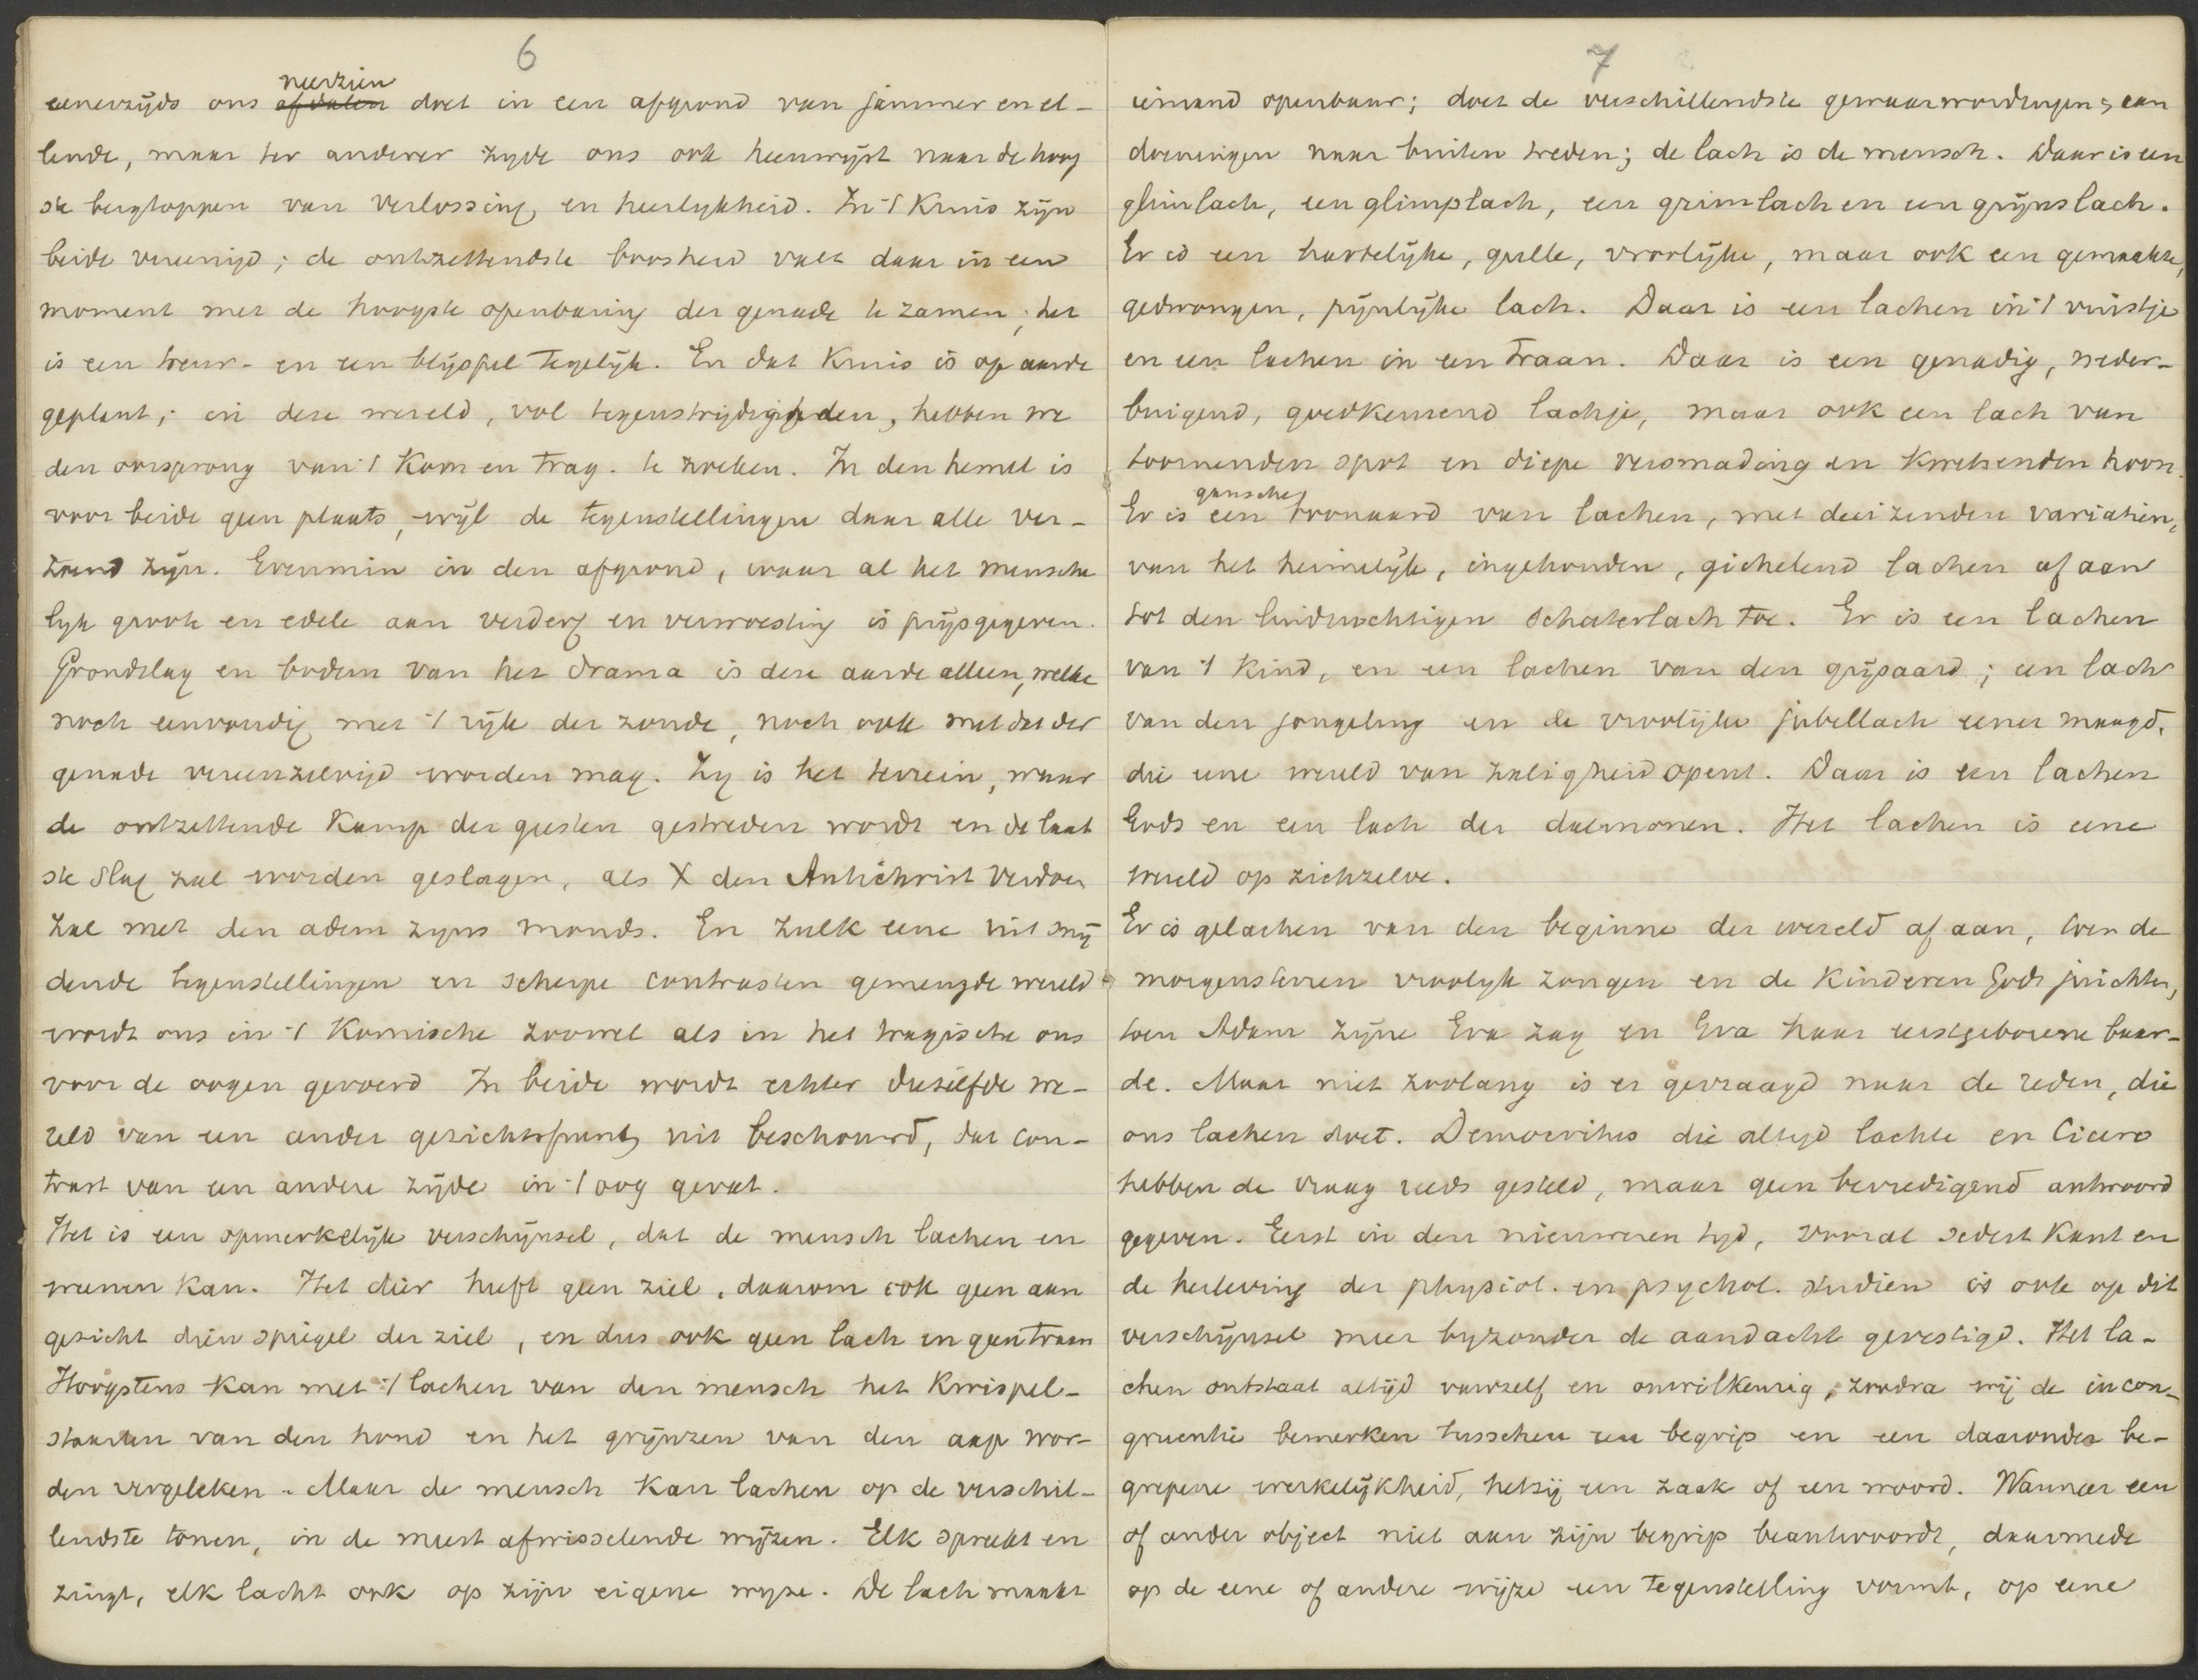 6
neerzien
eenerzijds ons afdalen doet in een afgrond van jammer en el-
lende, maar ter anderer zyde ons ook heenwijst naar de hoog
ste bergtoppen van verlossing en heerlykheid. In 't Kruis zijn
beide vereenigd; de ontzettendste boosheid valt daar in een
moment met de hoogste openbaring der genade te zamen; het
is een treur- en een blijspel tegelijk. En dat Kruis is op aarde
geplant; in deze wereld, vol tegenstrijdigheden, hebben we
den oorsprong van 't Kom en Trag. te zoeken. In den hemel is
voor beide geen plaats, wijl de tegenstellingen daar alle ver-
zoend zijn. Evenmin in den afgrond, waar al het mensche
lyk groote en edele aan verderf en verwoesting is prijsgegeven.
Grondslag en bodem van het drama is deze aarde alleen, welke
noch eenvoudig met 't rijk der zonde, noch ook met dat der
genade vereenzelvigd worden mag. Zy is het terrein, waar
de ontzettende Kamp der geesten gestreden wordt en de laat
ste slag zal worden geslagen, als X den Antichrist verdoen
zal met den adem zyns monds. En zulk eene uit snij
dende tegenstellingen en scherpe contrasten gemengde wereld
wordt ons in 't Komische zoowel als in het tragische ons
voor de oogen gevoerd In beide wordt echter diezelfde we-
reld van een ander gezichtspunt uit beschouwd, dat con-
trast van een andere zijde in 't oog gevat.
Het is een opmerkelijk verschijnsel, dat de mensch lachen en
weenen kan. Het dier heeft geen ziel, daarom ook geen aan
gezicht dien spiegel der ziel, en dus ook geen lach en geen traan
Hoogstens kan met 't lachen van den mensch het Kwispel-
staarten van den hond en het grijnzen van den aap wor-
den vergeleken. Maar de mensch kan lachen op de verschil-
lendste tonen, in de meest afwisselende wijzen. Elk spreekt en
zingt, elk lacht ook op zijn eigene wyze. De lach maakt
7
iemand openbaar; doet de verschillendste gewaarwordingen, aan
doeningen naar buiten treden; de lach is de mensch. Daar is een
glimlach, een glimplach, een grimlach en een grijnslach.
Er is een hartelijke, gulle, vroolijke, maar ook een gemaakte,
gedwongen, pijnlijke lach. Daar is een lachen in 't vuistje
en een lachen in een Traan. Daar is een genadig, neder-
buigend, goedkeurend lachje, maar ook een lach van
toornenden spot en diepe versmading en Kwetsenden hoon.
gansche
Er is een toonaard van lachen, met duizenden variatien,
van het heimelijk, ingehouden, gichelend lachen af aan
tot den luidruchtigen schaterlach toe. Er is een lachen
van 't Kind, en een lachen van den grijsaard; een lach
van den jongeling en de vroolijke jubellach eener maagd,
die eene wereld van zaligheid opent. Daar is een lachen
Gods en een lach der daemonen. Het lachen is eene
wereld op zichzelve.
Er is gelachen van den beginne der wereld af aan, toen de
morgensterren vroolyk zongen en de Kinderen Gods juichten,
toen Adam zijne Eva zag en Eva haar eerstgeborene baar-
de. Maar niet zoolang is er gevraagd naar de reden, die
ons lachen doet. Democritus die altyd lachte en Cicero
hebben de vraag reeds gesteld, maar geen bevredigend antwoord
gegeven. Eerst in den nieuweren tyd, vooral sedert Kant en
de herleving der physiol. en psychol. studien is ook op dit
verschijnsel meer byzonder de aandacht gevestigd. Het la-
chen ontstaat altijd vanzelf en onwilkeurig, zoodra wij de incon-
gruentie bemerken tusschen een begrip en een daaronder be-
grepene werkelijkheid, hetzij een zaak of een woord. Wanneer een
of ander object niet aan zijn begrip beantwoordt, daarmede
op de eene of andere wijze een tegenstelling vormt, op eene